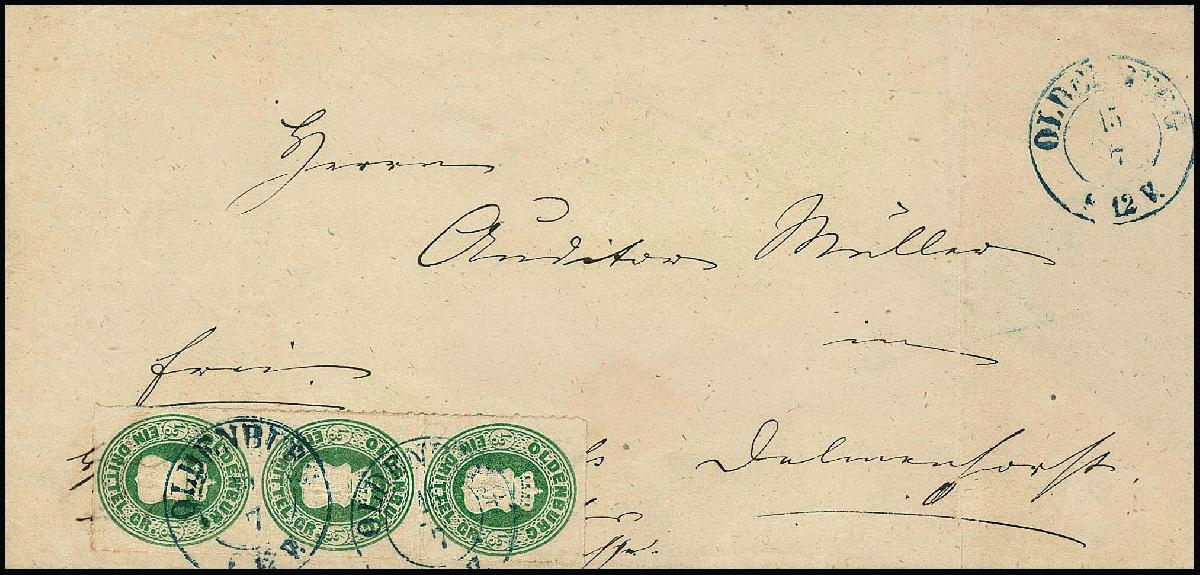 Herrn
Auditor Müller
in
frei.
Delmenhorst.
OLDENBURG
15
7
12 V.
EIN DRITTEL GR.
OLDENBURG
EIN DRITTEL GR.
OLDENBURG
EIN DRITTEL GR.
OLDENBURG
OLDENBUR
7
12 V.
OLDENB
7